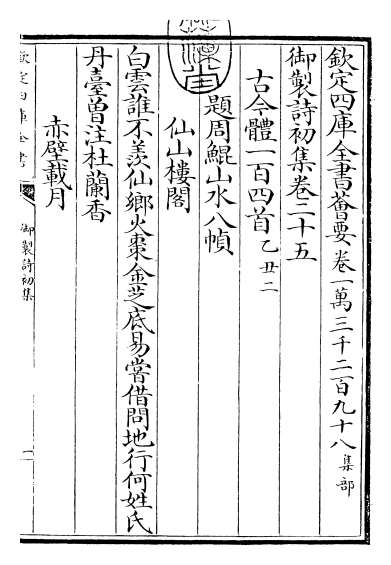 欽定四庫全書薈要卷一萬三千二百九十八集部
御製詩初集卷二十五
古今體一百四首乙丑二
題周鯤山水八幀
仙山樓閣
白雲誰不羨仙鄉火棗金芝底易嘗借問地行何姓氏
丹臺曾注杜蘭香
赤壁載月
御製詩初集